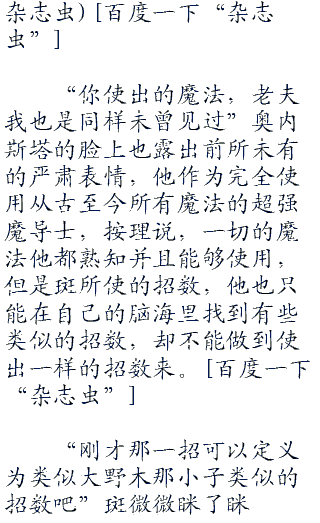 杂志虫) [百度一下“杂志
虫”]
“你使出的魔法，老夫
我也是同样未曾见过”奥内
斯塔的脸上也露出前所未有
的严肃表情，他作为完全使
用从古至今所有魔法的超强
魔导士，按理说，一切的魔
法他都熟知并且能够使用，
但是斑所使的招数，他也只
能在自己的脑海里找到有些
类似的招数，却不能做到使
出一样的招数来。[百度一下
“杂志虫”]
“刚才那一招可以定义
为类似大野木那小子类似的
招数吧”斑微微眯了眯